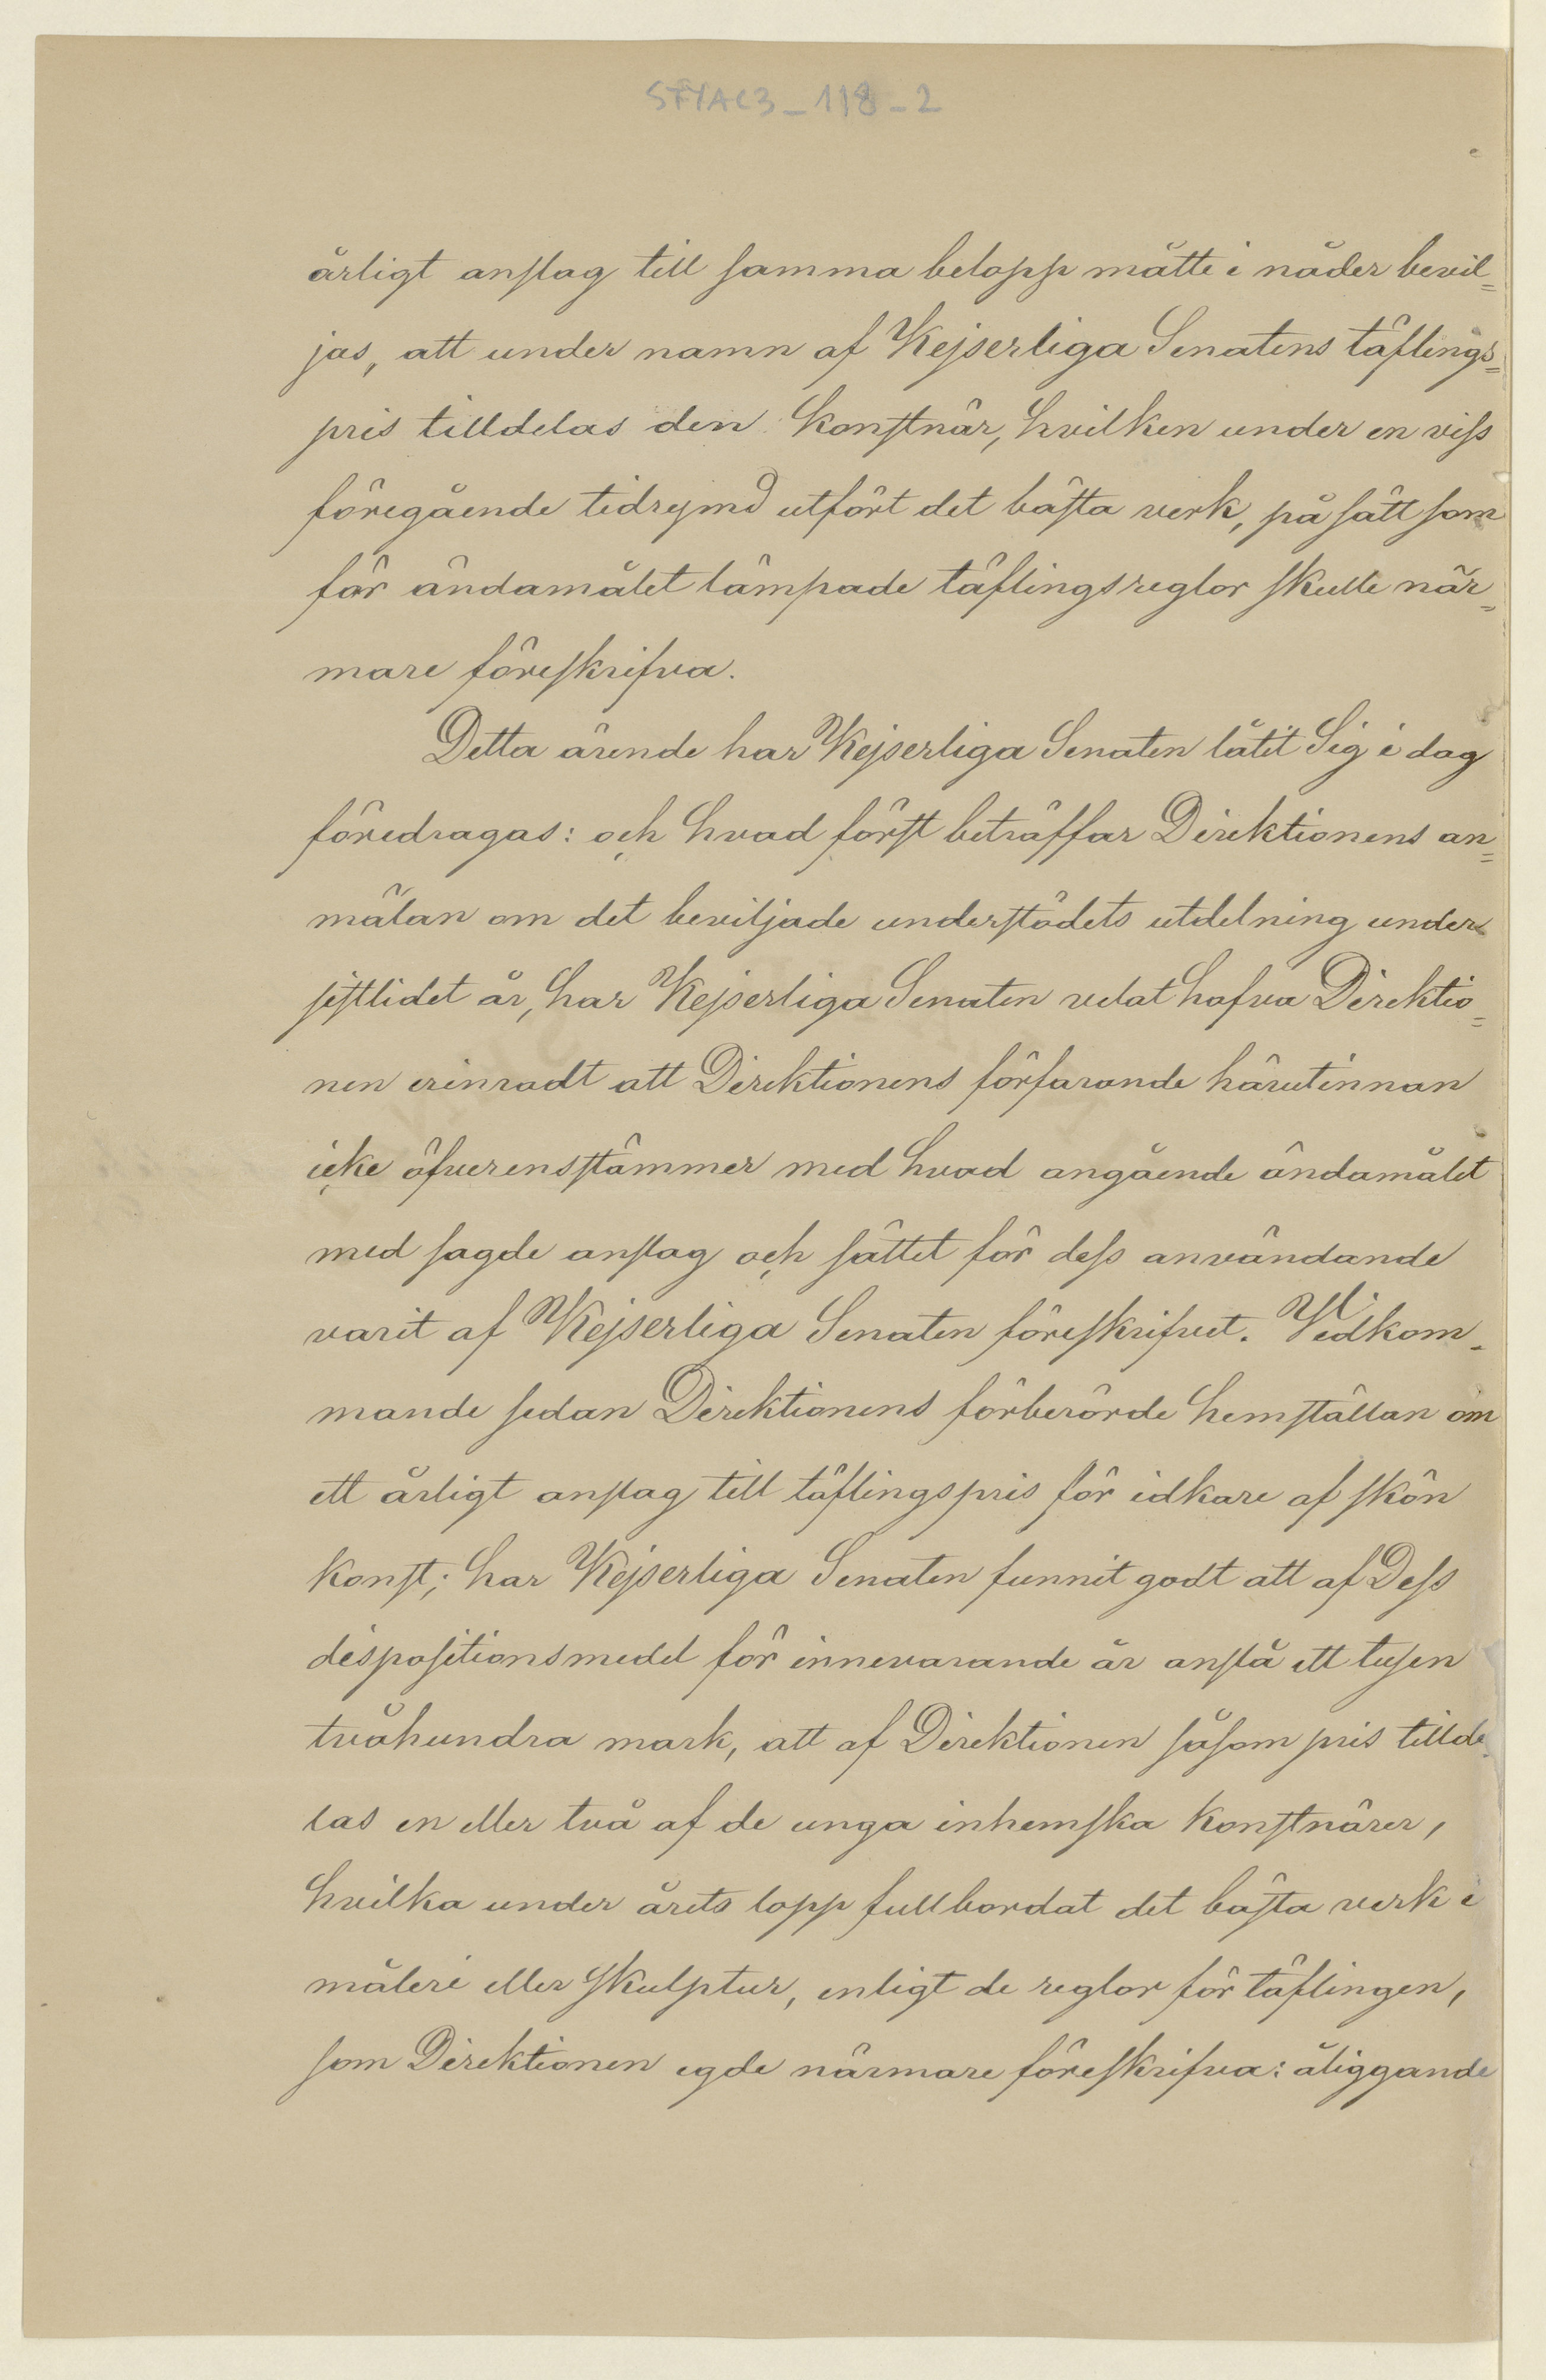 STYAC3_118_2
årligt anslag till samma belopp måtte i nåder bevil=
jas, att under namn af Kejserliga Senatens täflings=
pris tilldelas den konstnär, hvilken under en viss
föregående tidrymd utfört det bästa verk, på sätt som
för ändamålet lämpade täflingsreglor skulle när=
mare föreskrifva.
Detta ärende har Kejserliga Senaten låtit Sig i dag
föredragas: och hvad först beträffar Direktionens an=
mälan om det beviljade understödets utdelning under
sistlidet år, har Kejserliga Senaten velat hafva Direktio=
nen erinradt att Direktionens förfarande härutinnan
icke öfverensstämmer med hvad angående ändamålet
med sagde anslag och sättet för dess användande
varit af Kejserliga Senaten föreskrifvet. Vidkom-
mande sedan Direktionens förberörde hemställan om
ett årligt anslag till täflingspris för idkare af skön
konst; har Kejserliga Senaten funnit godt att af Dess
dispositionsmedel för innevarande år anslå ett tusen
tvåhundra mark, att af Direktionen såsom pris tillde-
las en eller två af de unga inhemska konstnärer,
hvilka under årets lopp fullbordat det bästa verk i
måleri eller skulptur, enligt de reglor för täflingen,
som Direktionen egde närmare föreskrifva: åliggande